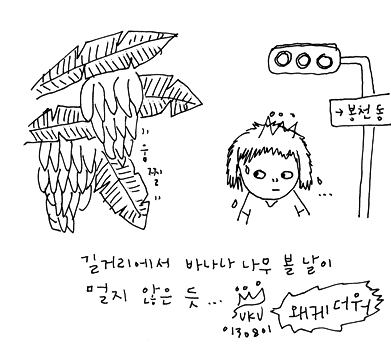 "흥쯥"
→봉천동
길거리에서 바나나 나무 볼 날이
멀지 않은 듯...
VKV
130801
왜케 더워